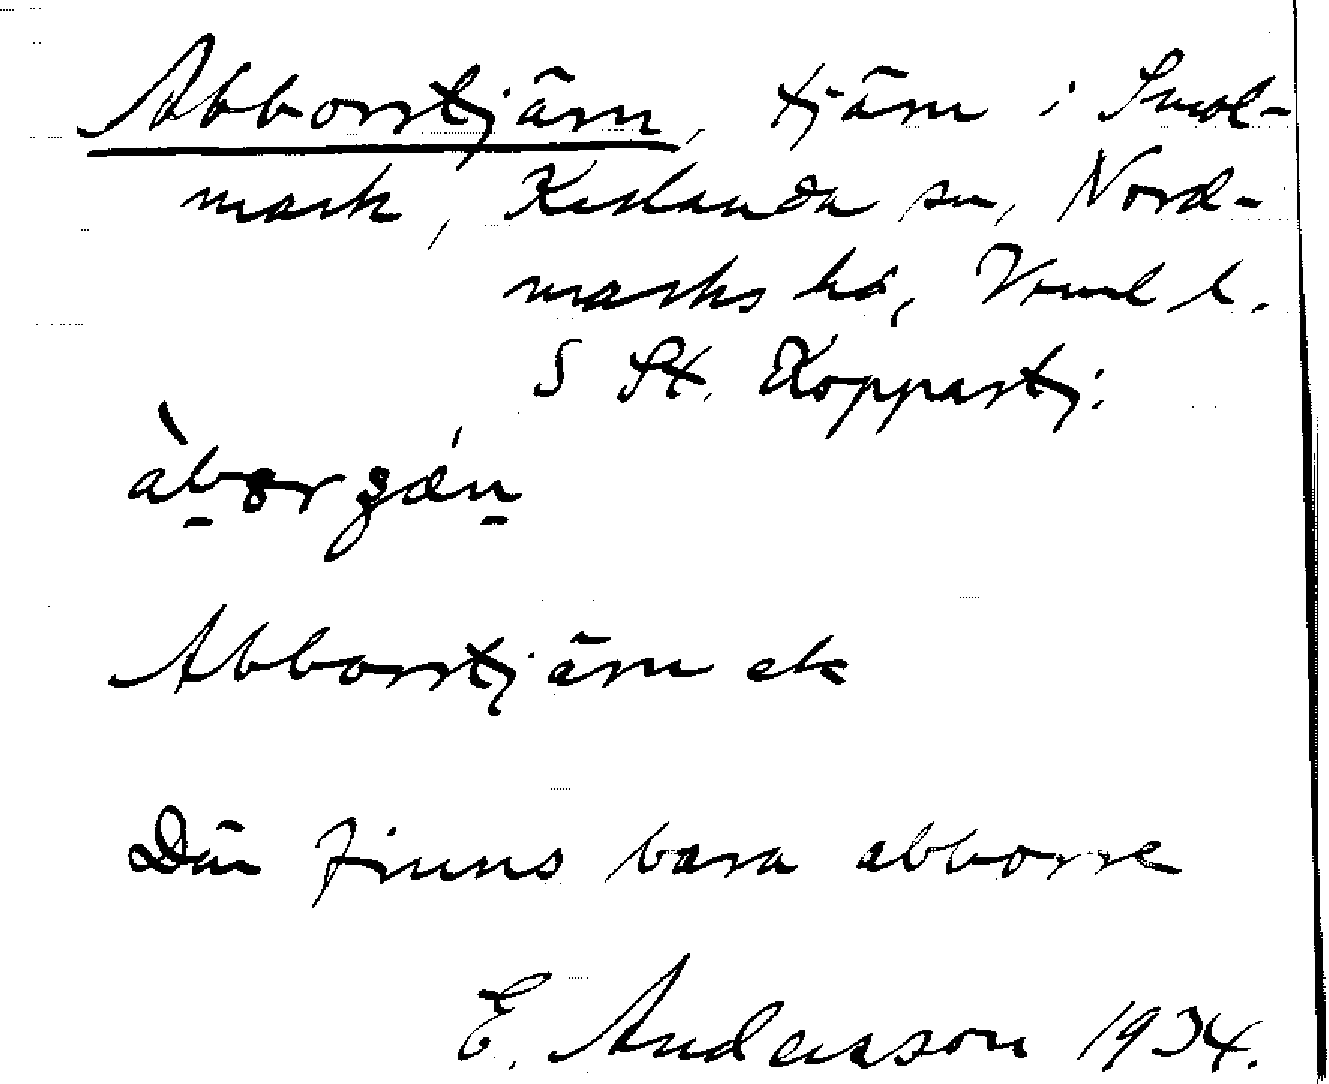 Abborrtjärn, tjärn i Svol-
mark, Karlanda sn, Nord-
marks hd, Vrml l.
S St. Kopparstj:
Abborrtjärn ek
Där finns bara abborre
E. Andersson 1934.